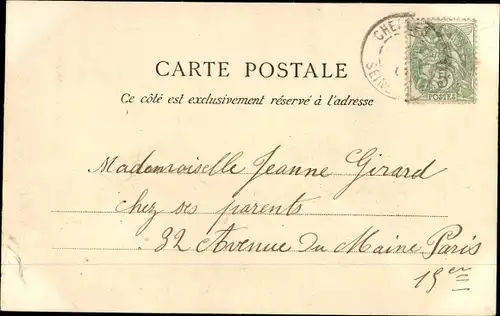 CHELLES
SEINE
5
POSTES
CARTE POSTALE
Ce côté est exclusivement réservé à l'adresse
Mademoiselle Jeanne Girard
chez ses parents
32 Avenue du Maine Paris
15em